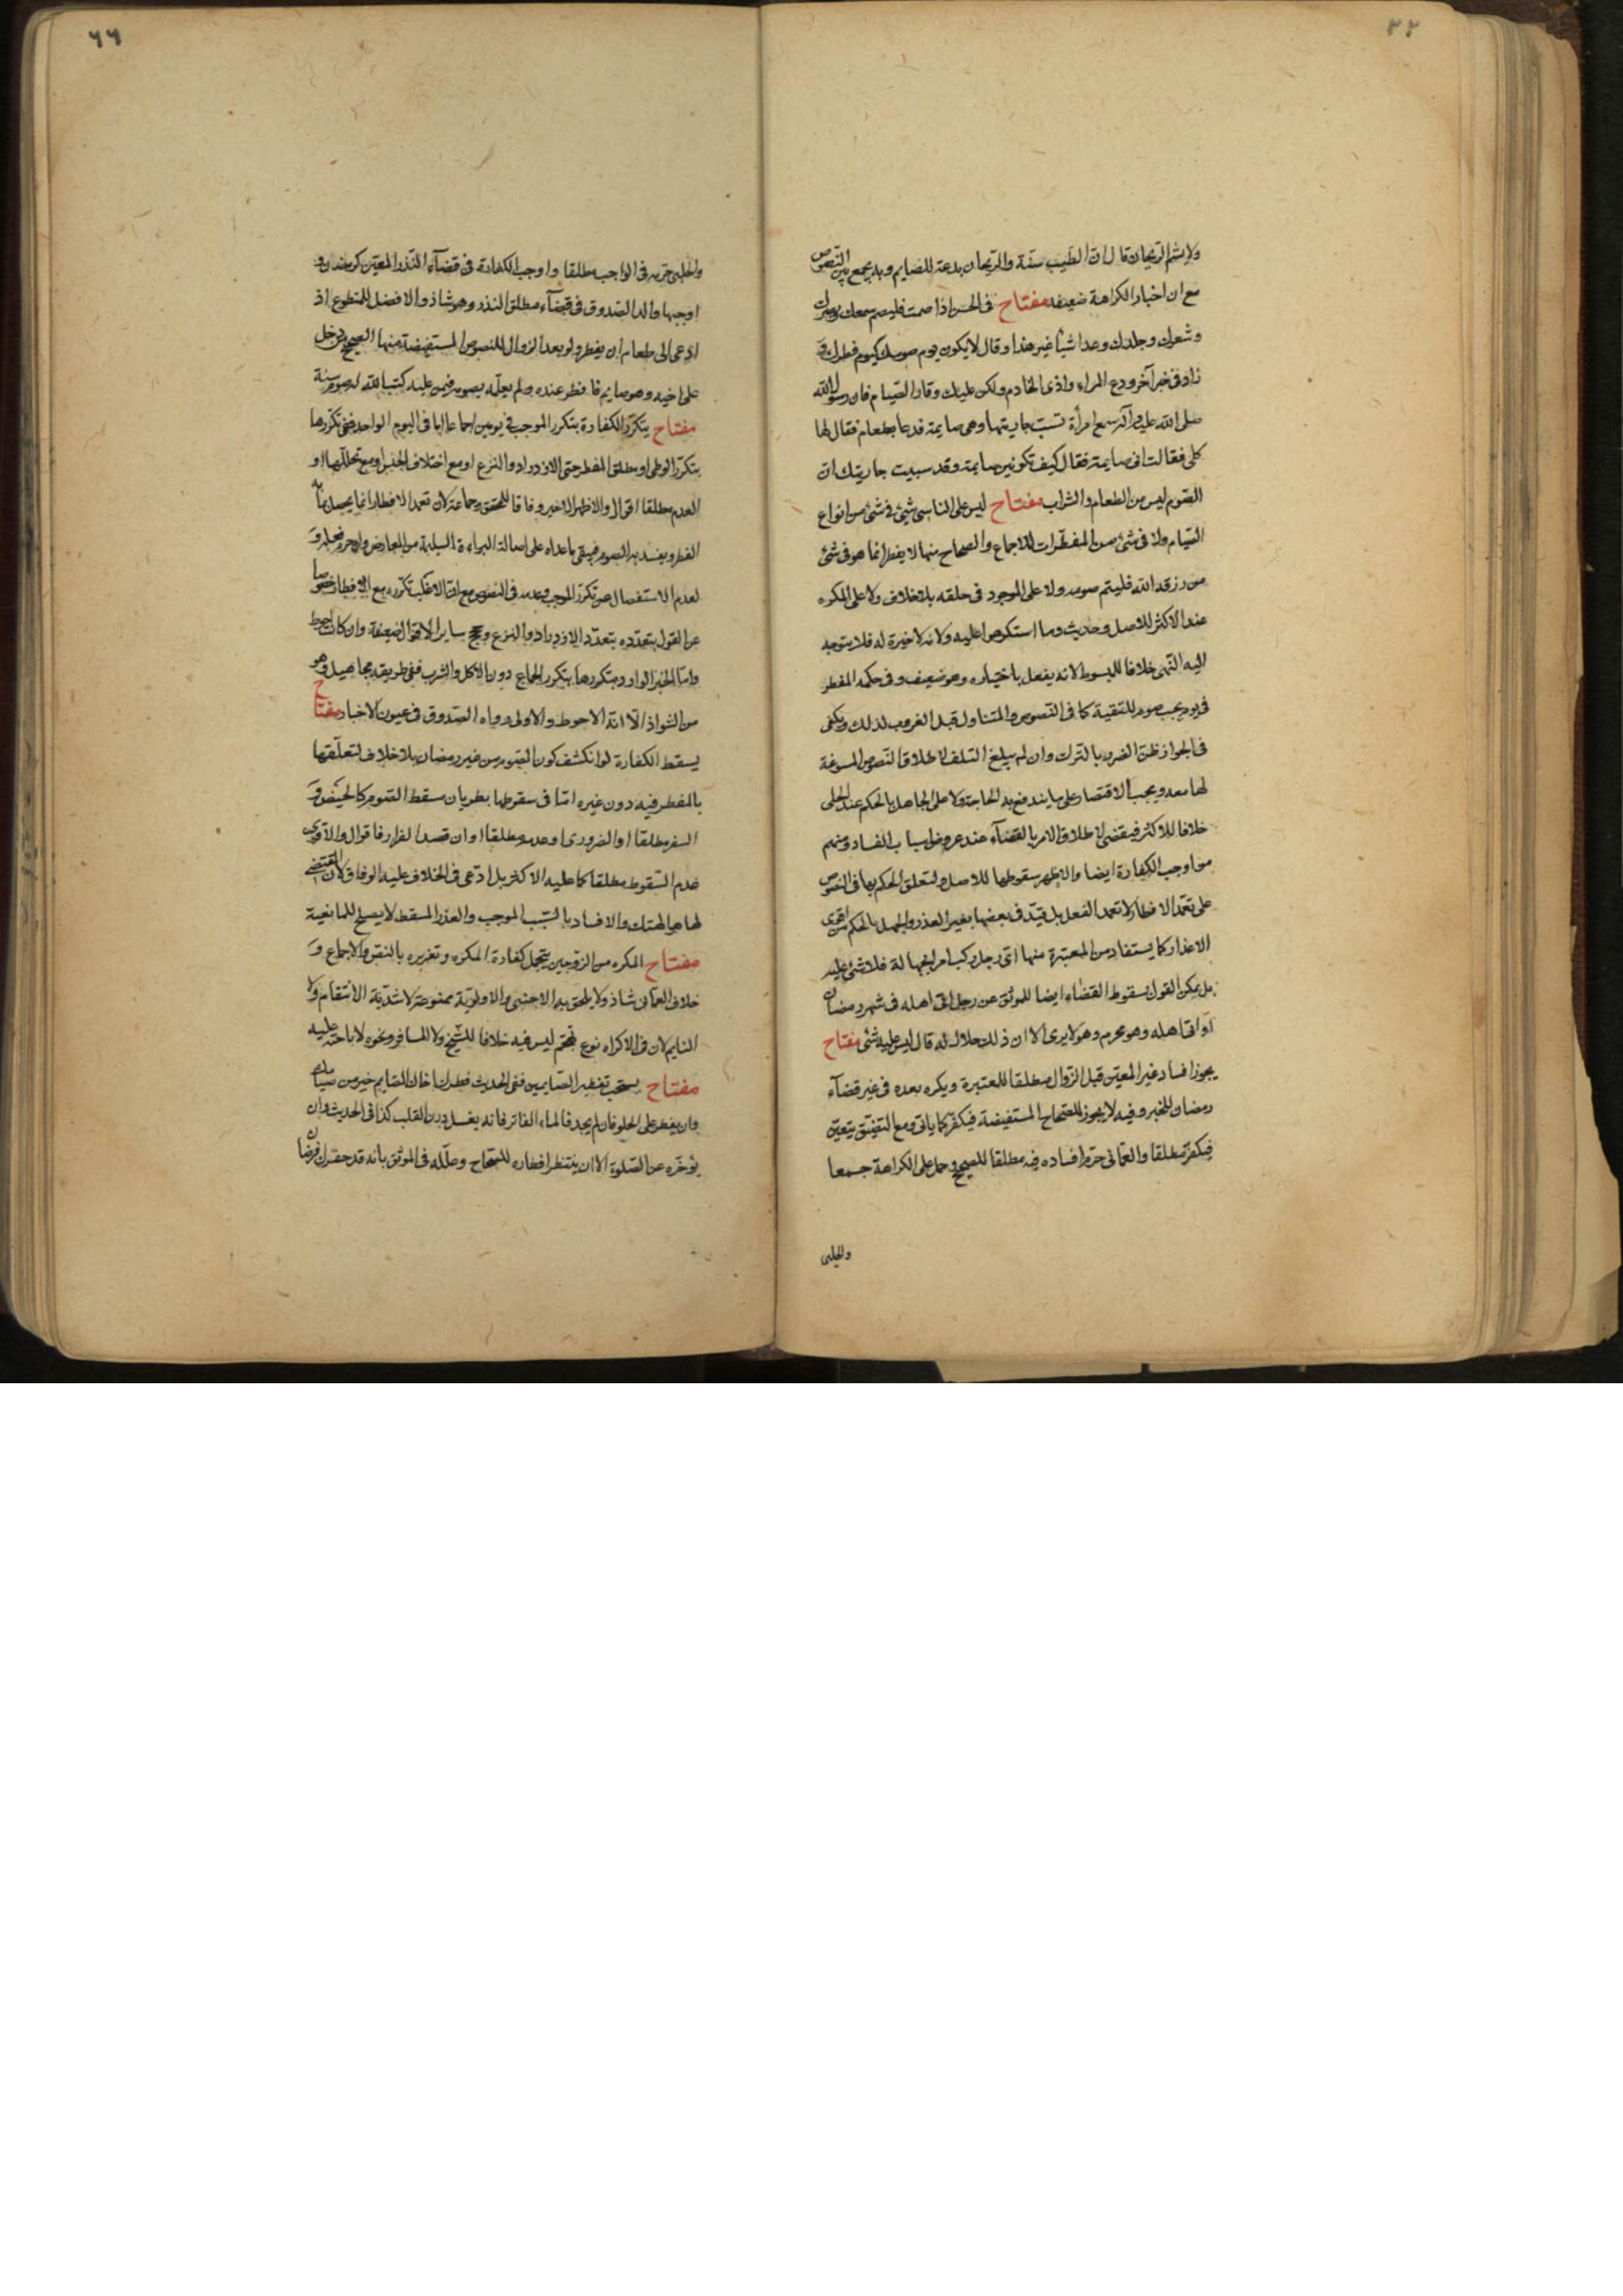 ٢٢
ولا يشم الريحان قال ان الطيب سنة والريحان بدعة للصايم وبه يجمع بين النصوص
مع ان اخبار الكراهة ضعيفة مفتاح فى الحسن اذا صمت فليصم سمعك وبصرك
وشعرك وجلدك وعدا شيئا غير هذا وقال لا يكون يوم صومك كيوم فطرك و
زاد فى خبر آخر ودع المراء واذى الخادم ولكن عليك وقار الصيام فان رسول الله
صلى الله عليه وآله سمع امرأة تسب جاريتها وهى صايمة فدعا بطعام فقال لها
كلى فقالت انى صايمة فقال كيف تكونين صايمة وقد سببت جاريتك ان
الصوم ليس من الطعام والشراب مفتاح ليس على الناسى شئ فى شئ من انواع
الصيام ولا فى شئ من المفطرات للاجماع والصحاح منها لا يفطر انما هو فى شئ
من رزقه الله فليتم صومه ولا على الموجود فى حلقه بلا خلاف ولا على المكره
عند الاكثر للاصل وحديث وما استكرهوا عليه ولانه لا خيرة له فلا يتوجه
اليه النهى خلافا للمبسوط لانه يفعل باختياره وهو ضعيف وفى حكمه المفطر
فى يوم يجب صومه للتقية كما فى النصوص والمتناول قبل الغروب لذلك ويكفى
فى الجواز ظن الضرر بالترك وان لم يبلغ التلف لاطلاق النصوص المسوغة
لها معه ويجب الاقتصار على ما يندفع به الحاجة ولا على الجاهل بالحكم عند الحلى
خلافا للاكثر فيقضى لاطلاق الامر بالقضآء عند عروض اسباب الفساد ومنهم
من اوجب الكفارة ايضا والاظهر سقوطها للاصل ولتعلق الحكم بها فى النصوص
على تعمد الافطار لا تعمد الفعل بل قيد فى بعضها بغير العذر والجهل بالحكم من اقوى
الاعذار كما يستفاد من المعتبرة منها اى رجل ركب امرا بجهالة فلا شئ عليه
بل يمكن القول بسقوط القضاء ايضا للموثق عن رجل اتى اهله فى شهر رمضان
او اتى اهله وهو محرم وهو لا يرى الا ان ذلك حلال له قال ليس عليه شئ مفتاح
يجوز افساد غير المعين قبل الزوال مطلقا للمعتبرة ويكره بعده فى غير قضآء
رمضان للخبر وفيه لا يجوز للصحاح المستفيضة فيكفر كما ياتى ومع التضيق يتعين
فيكفر مطلقا والعمانى حرم افساده فيه مطلقا للصحيح وحمل على الكراهة جمعا
والحلبى
٦٦
والحلبى حرمه فى الواجب مطلقا واوجب الكفارة فى قضآء النذر المعين كرمضان و
اوجبها والد الصدوق فى قضآء مطلق النذر وهو شاذ والافضل للمتطوع اذ
ادعى الى طعام ان يفطر ولو بعد الزوال للنصوص المستفيضة منها الصحيح من دخل
على اخيه وهو صايم فافطر عنده ولم يعلمه بصومه فيمن عليه كتب الله له صوم سنة
مفتاح يتكرر الكفارة بتكرر الموجب فى يومين اجماعا اما فى اليوم الواحد ففى تكررها
بتكرر الوطى او مطلق المفطر حتى الازدراد والنزع او مع اختلاف الجنس او مع تخللها او
العدم مطلقا اقوال والاظهر الاخير وفاقا للمحقق وجماعة لان تعمد الافطار انما يحصل بما به
الفطر ويفسد به الصوم فيبقى ما عداه على اصالة البراءة السليمة من المعارض وان حرم فعله و
لعدم الاستفصال عن تكرر الموجب وعدمه فى النصوص مع ان الاغلب تكرره مع الافطار خصوصا
على القول بتعدده بتعدد الازدراد والنزع وحجج ساير الاقوال ضعيفة وان كانت احوط
واما الخبر الوارد بتكررها بتكرر الجماع دون الاكل والشرب ففى طريقه مجاهيل وهو
من الشواذ الا انه الاحوط والاولى رواه الصدوق فى عيون الاخبار مفتاح
يسقط الكفارة لو انكشف كون الصوم من غير رمضان بلا خلاف لتعلقها
بالمفطر فيه دون غيره اما فى سقوطها بطريان سقط الصوم كالحيض و
السفر مطلقا او الضرورى او عدمه مطلقا او ان قصد الفرار فاقوال والاقوى
عدم السقوط مطلقا كما عليه الاكثر بل ادعى فى الخلاف عليه الوفاق لان المقتضى
لها هو الهتك والافساد بالسبب الموجب والعذر المسقط لا يصلح للمانعية
مفتاح المكره من الزوجين يتحمل كفارة المكره وتعزيره بالنص والاجماع و
خلاف العمانى شاذ ولا يلحق به الاجنبى والاولوية ممنوعة لاشدية الانتقام ولا
النايم لان فى الاكراه نوع تهجم ليس فيه خلافا للشيخ ولا المسافر ونحوه لاباحته عليه
مفتاح يستحب تفطير الصايمين ففى الحديث فطرك اخاك الصايم خير من صيامك
وان يفطر على الحلو فان لم يجد فالماء الفاتر فانه يغسل درن القلب كذا فى الحديث وان
يؤخره عن الصلوة الا ان ينتظر افطاره للصحاح وعلله فى الموثق بانه قد حضرك فرضان